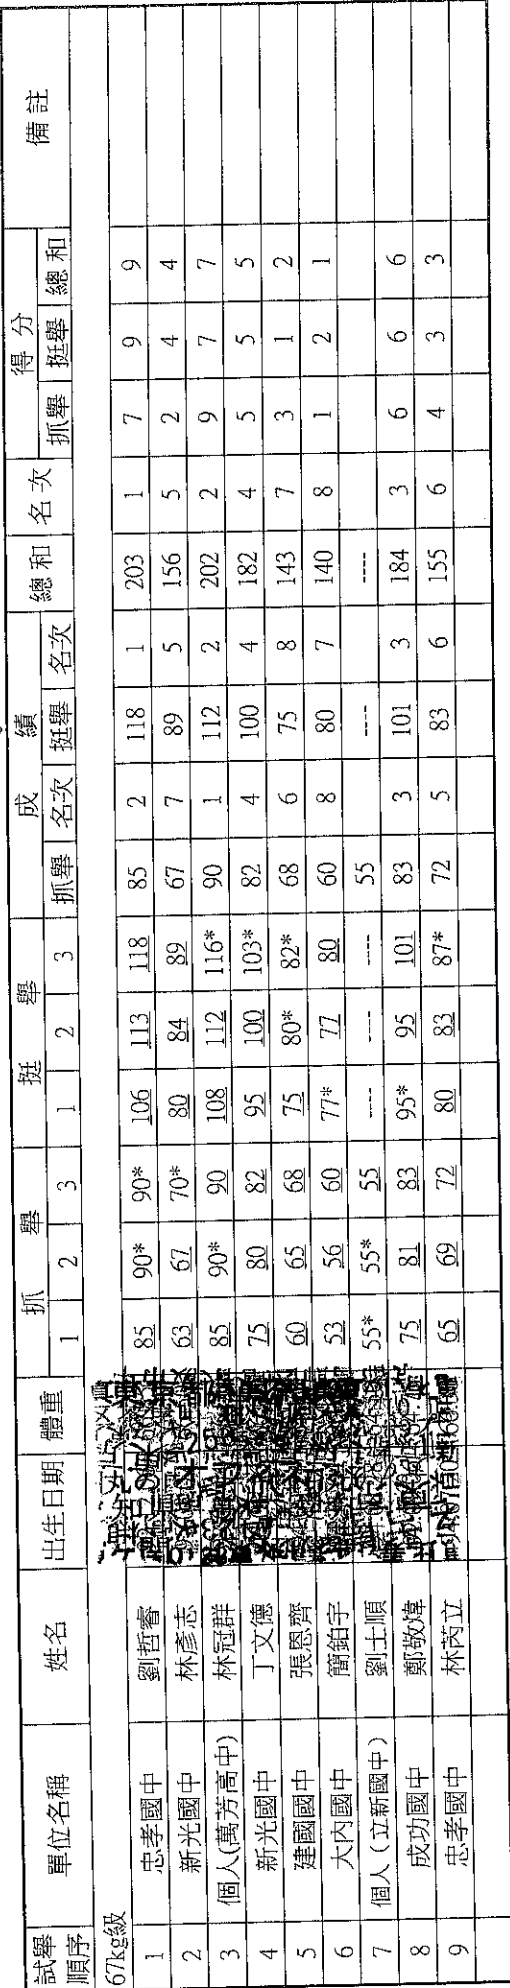 試舉順序 單位名稱 姓名 出生日期 體重 抓舉 挺舉 成績 總和 名次 得分 備註
1 2 3 1 2 3 抓舉 名次 挺舉 名次 抓舉 挺舉 總和
67kg級
1 忠孝國中 劉哲睿 85 90* 90* 106 113 118 85 2 118 1 203 1 7 9 9
2 新光國中 林彥志 63 67 70* 80 84 89 67 7 89 5 156 5 2 4 4
3 個人(萬芳高中) 林冠群 85 90* 90 108 112 116* 90 1 112 2 202 2 9 7 7
4 新光國中 丁文德 75 80 82 95 100 103* 82 4 100 4 182 4 5 5 5
5 建國國中 張恩齊 60 65 68 75 80* 82* 68 6 75 8 143 7 3 1 2
6 大內國中 簡鉑宇 53 56 60 77* 77 80 60 8 80 7 140 8 1 2 1
7 個人（立新國中） 劉士順 55* 55* 55 ---- ---- ---- 55 ---- ----
8 成功國中 鄭敬煒 75 81 83 95* 95 101 83 3 101 3 184 3 6 6 6
9 忠孝國中 林芮立 65 69 72 80 83 87* 72 5 83 6 155 6 4 3 3